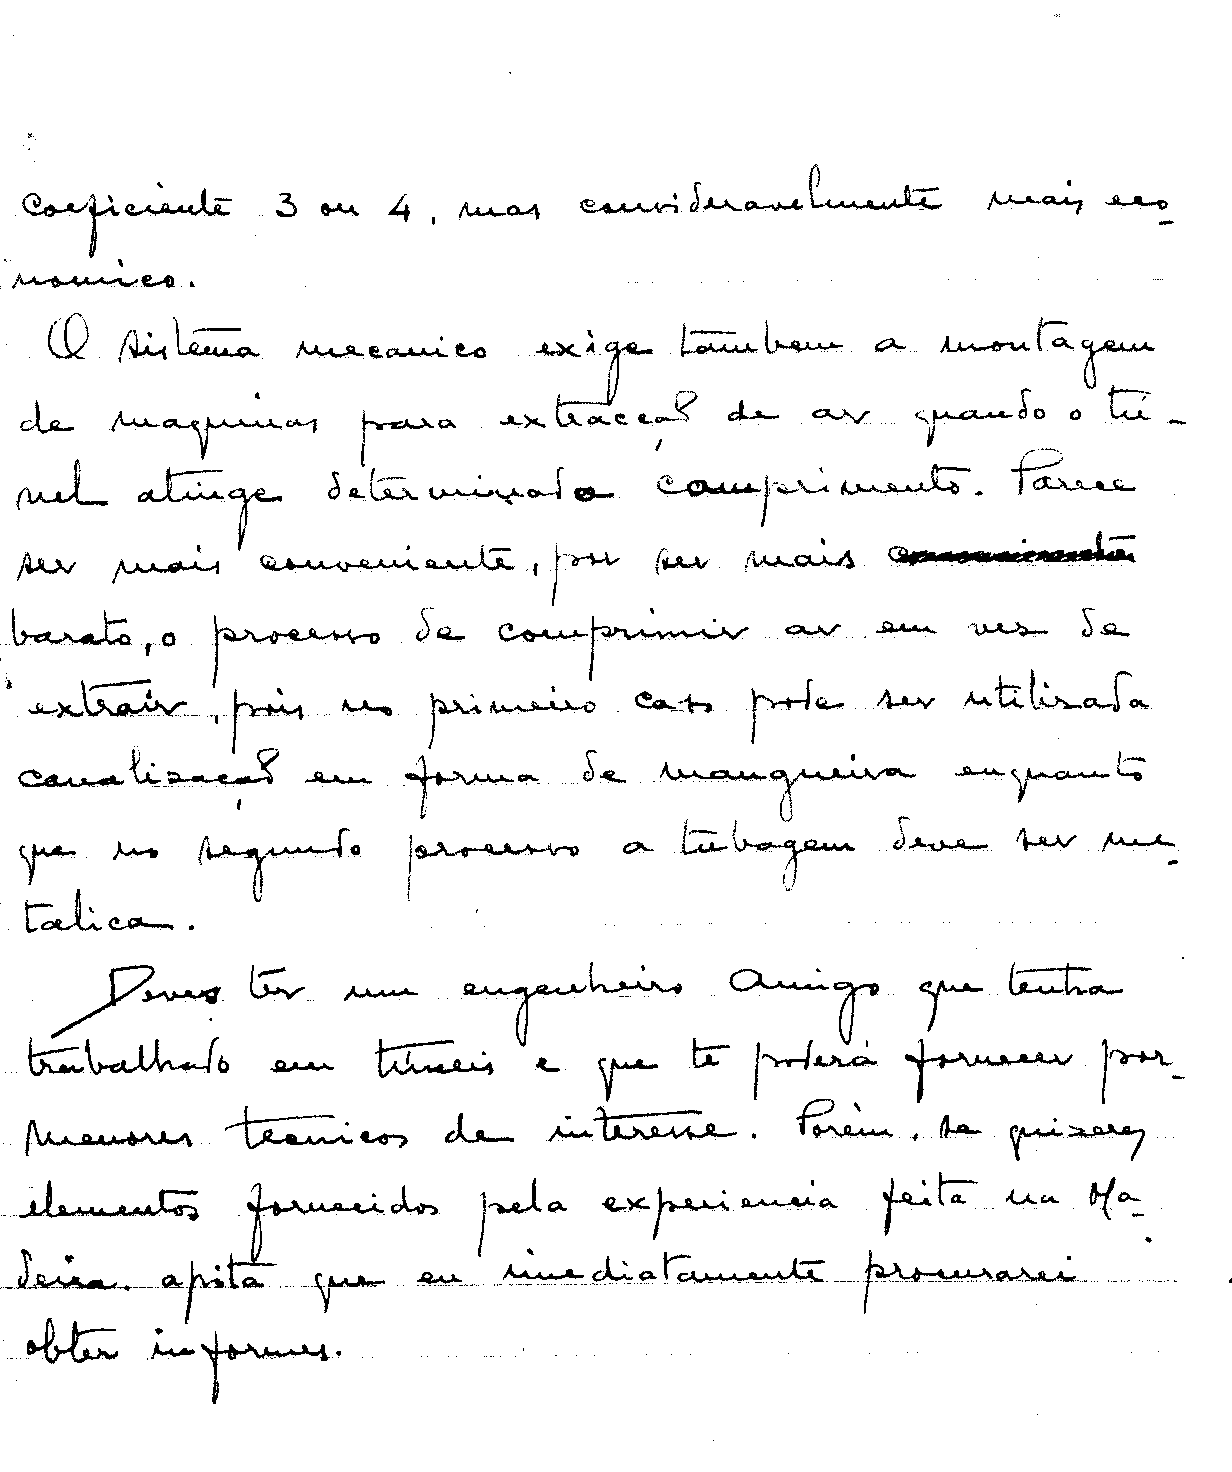 coeficiente 3 ou 4, mas consideravelmente mais eco-
nomico.
O sistema mecanico exige tambem a montagem
de maquinas para extracção de ar quando o tú-
nel atinge determinado comprimento. Parece
ser mais conveniente, por ser mais
barato, o processo de comprimir ar em vez de
extrair, pois no primeiro caso pode ser utilizada
canalização em forma de mangueira enquanto
que no segundo processo a tubagem deve ser me-
talica.
Deves ter um engenheiro amigo que tenha
trabalhado em túneis e que te poderá fornecer por-
menores tecnicos de interesse. Porém, se quizeres
elementos fornecidos pela experiencia feita na Ma-
deira, apita que eu imediatamente procurarei
obter informes.